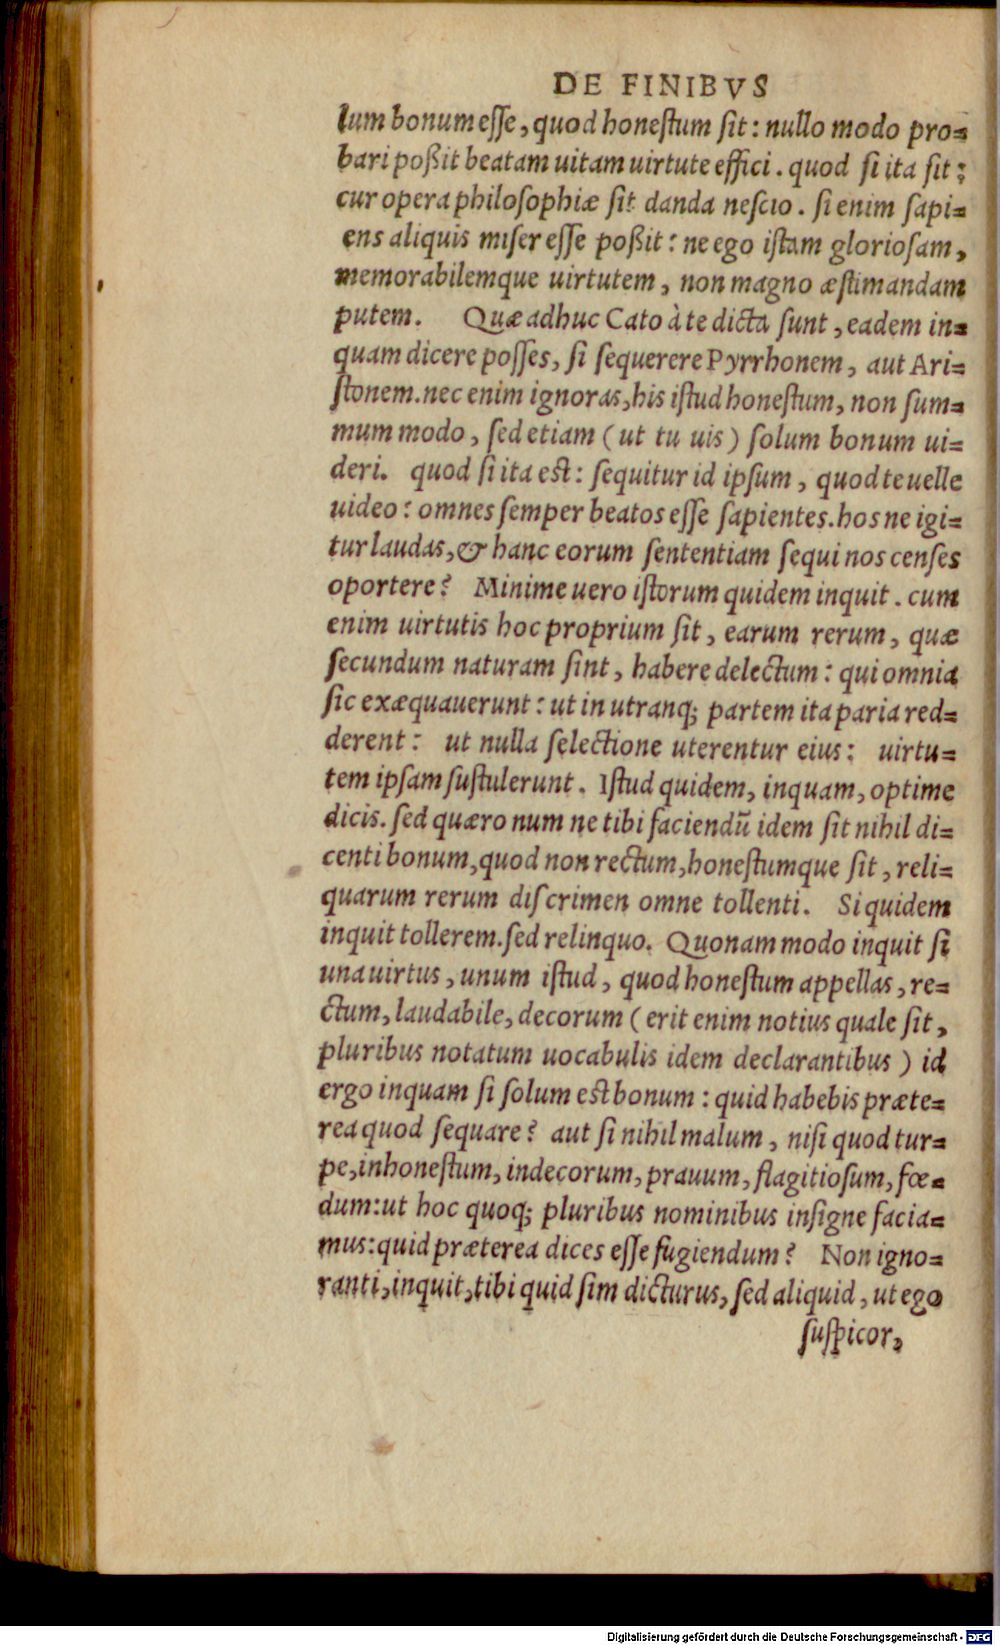 DE FINIBVS
lum bonum esſe, quod honeſtum ſit: nullo modo pro-
bari poßit beatam uitam uirtute effici. quod ſi ita ſit:
cur opera philoſophiæ ſit danda neſcio. ſi enim ſapi-
ens aliquis miſer eſſe poßit: ne ego iſtam glorioſam,
memorabilemque uirtutem, non magno æſtimandam
putem. Quæ adhuc Cato à te dicta ſunt, eadem in-
quam dicere poſſes, ſi ſequerere Pyrrhonem, aut Ari-
ſtonem. nec enim ignoras, his iſtud honeſtum, non ſum-
mum modo, ſed etiam (ut tu uis) ſolum bonum ui-
deri. quod ſi ita eſt: ſequitur id ipſum, quod te uelle
uideo: omnes ſemper beatos eſſe ſapientes. hos ne igi-
tur laudas, & hanc eorum ſententiam ſequi nos cenſes
oportere? Minime uero iſtorum quidem inquit. cum
enim uirtutis hoc proprium ſit, earum rerum, quæ
ſecundum naturam ſint, habere delectum: qui omnia
ſic exæquauerunt: ut in utranq; partem ita paria red-
derent: ut nulla ſelectione uterentur eius: uirtu-
tem ipſam ſuſtulerunt. Iſtud quidem, inquam, optime
dicis. ſed quæro num ne tibi faciendū idem ſit nihil di-
centi bonum, quod non rectum, honeſtumque ſit, reli-
quarum rerum diſcrimen omne tollenti. Si quidem
inquit tollerem. ſed relinquo. Quonam modo inquit ſi
una uirtus, unum iſtud, quod honeſtum appellas, re-
ctum, laudabile, decorum (erit enim notius quale ſit,
pluribus notatum uocabulis idem declarantibus) id
ergo inquam ſi ſolum eſt bonum: quid habebis præte-
rea quod ſequare? aut ſi nihil malum, niſi quod tur-
pe, inhoneſtum, indecorum, prauum, flagitioſum, fœ-
dum: ut hoc quoq; pluribus nominibus inſigne facia-
mus: quid præterea dices eſſe fugiendum? Non igno-
ranti, inquit, tibi quid ſim dicturus, ſed aliquid, ut ego
ſuſpicor,
Digitalisierung gefördert durch die Deutsche Forschungsgemeinschaft - DFG